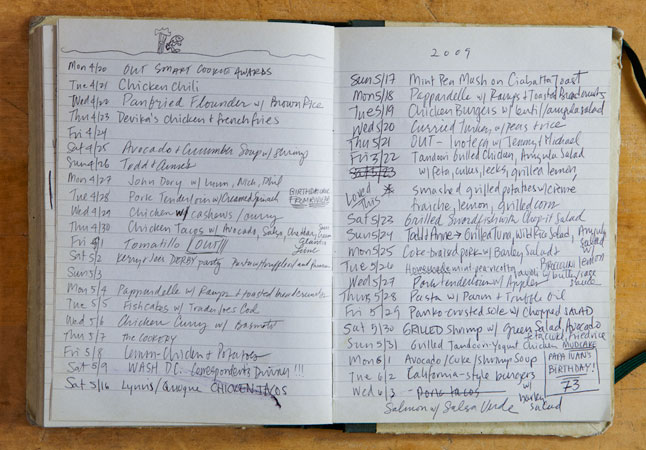 Mon 4/20 OUT SMART COOKIE AWARDS
Tue 4/21 Chicken Chili
Wed 4/22 Panfried Flounder w/ Brown Rice
Thu 4/23 Devika's chicken + french fries
Fri 4/24
Sat 4/25 Avocado + Cucumber Soup w/ Shrimp
Sun 4/26 Todd +
Mon 4/27 John Dory w/ Nick, Phil
Tue 4/28 Pork Tenderloin w/ Creamed Spinach
BIRTHDAY
Wed 4/29 Chicken w/ cashews / curry
Thu 4/30 Chicken Tacos w/ Avocado, Salsa, Cheddar, Sour Cream
Fri 5/1 Tomatillo (OUT)!!
Sat 5/2 DERBY party
Sun 5/3
Mon 5/4 Pappardelle w/ Ramps + toasted breadcrumbs
Tue 5/5 Fishcakes w/ Trader Joes Cod
Wed 5/6 Chicken Curry w/ Basmati
Thu 5/7
Fri 5/8 Lemon Chicken + Potatoes
Sat 5/9 WASH D.C. Correspondents Dinner!!!
Sat 5/16 Lynn's / CHICKEN TACOS
2009
Sun 5/17 Mint Pea Mush on Ciabatta Toast
Mon 5/18 Pappardelle w/ Ramps + Toasted Breadcrumbs
Tue 5/19 Chicken Burgers w/ lentil/arugula salad
Wed 5/20 Curried Turkey w/ peas + rice
Thu 5/21 OUT - Inoteca w/ Jenny + Michael
Fri 5/22 Tandoori Grilled Chicken, Arugula Salad
Sat 5/23 w/ feta, cukes, leeks, grilled lemon,
Loved This * smashed grilled potatoes w/ creme
fraiche, lemon, grilled corn
Sat 5/23 Grilled Swordfish w/ Chop-it Salad
Sun 5/24 Todd Anne → Grilled Tuna, Wild Rice Salad, Arugula Salad w/ lemon
Mon 5/25 Coke-braised pork w/ Barley Salad
Tue 5/26 Homemade
Wed 5/27 Pork tenderloin w/ Apples
Thurs 5/28 Pasta w/ Parm + Truffle Oil
Fri 5/29 Panko-crusted sole w/ Chopped SALAD
Sat 5/30 GRILLED Shrimp w/ Green Salad, Avocado
feta, cuke, fried rice
Sun 5/31 Grilled Tandoori-Yogurt Chicken MUDCAKE
Mon 6/1 Avocado/Cuke/Shrimp Soup
Tue 6/2 California-style burgers
PAPA IVAN'S
BIRTHDAY!
73
Wed 6/3 Pork tacos
Salmon w/ Salsa Verde w/ salad